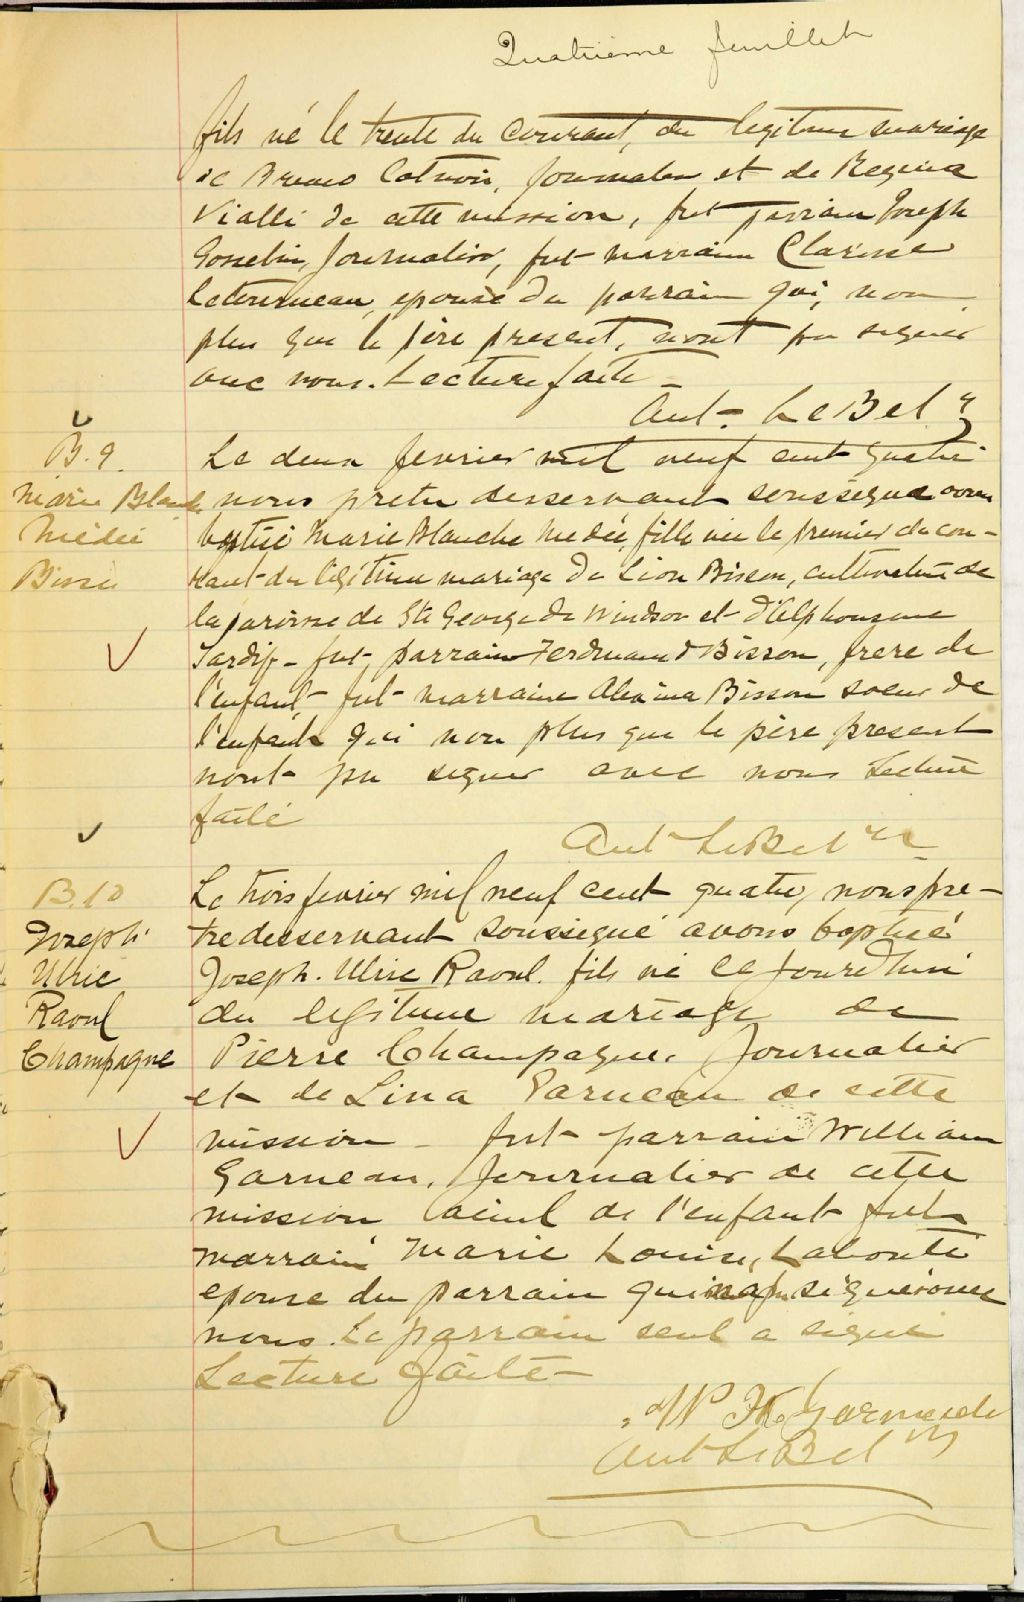 Quatrième feuillet
fils né le trente du courant, du legitime mariage
de Bruno Cotnoir, Journalier et de Regina
Vialli de cette mission, fut parrain Joseph
Gosselin, Journalier, fut marraine Clarisse
Letourneau, epouse du parrain qui, non
plus que le père present, n'ont pu signer
avec nous. Lecture faite -
Ant. LeBel
B. 9.
Marie Blanche
Médée
Bisson
Le deux fevrier mil neuf cent quatre
nous pretre desservant soussigné avons
baptisé Marie Blanche Médée, fille née le premier du cou-
rant du légitime mariage de Léon Bisson, cultivateur de
la paroisse de St George de Windsor et d'Alphonsine
Tardif - fut parrain Ferdinand Bisson, frere de
l'enfant - fut marraine Bisson soeur de
l'enfant qui non plus que le père present
n'ont pu signer avec nous Lecture
faite
Ant LeBel
B. 10
Joseph
Ulric
Raoul
Champagne
Le trois fevrier mil neuf cent quatre, nous pre-
tre desservant soussigné avons baptisé
Joseph. Ulric Raoul. fils né ce jourd'hui
du legitime mariage de
Pierre Champagne. Journalier
et de Lina Garneau de cette
mission - fut parrain William
Garneau, Journalier de cette
mission aieul de l'enfant fut
marraine Marie Louise, Labonté
epouse du parrain qui signer avec
nous. Le parrain seul a signé
Lecture faite -
Ant LeBel